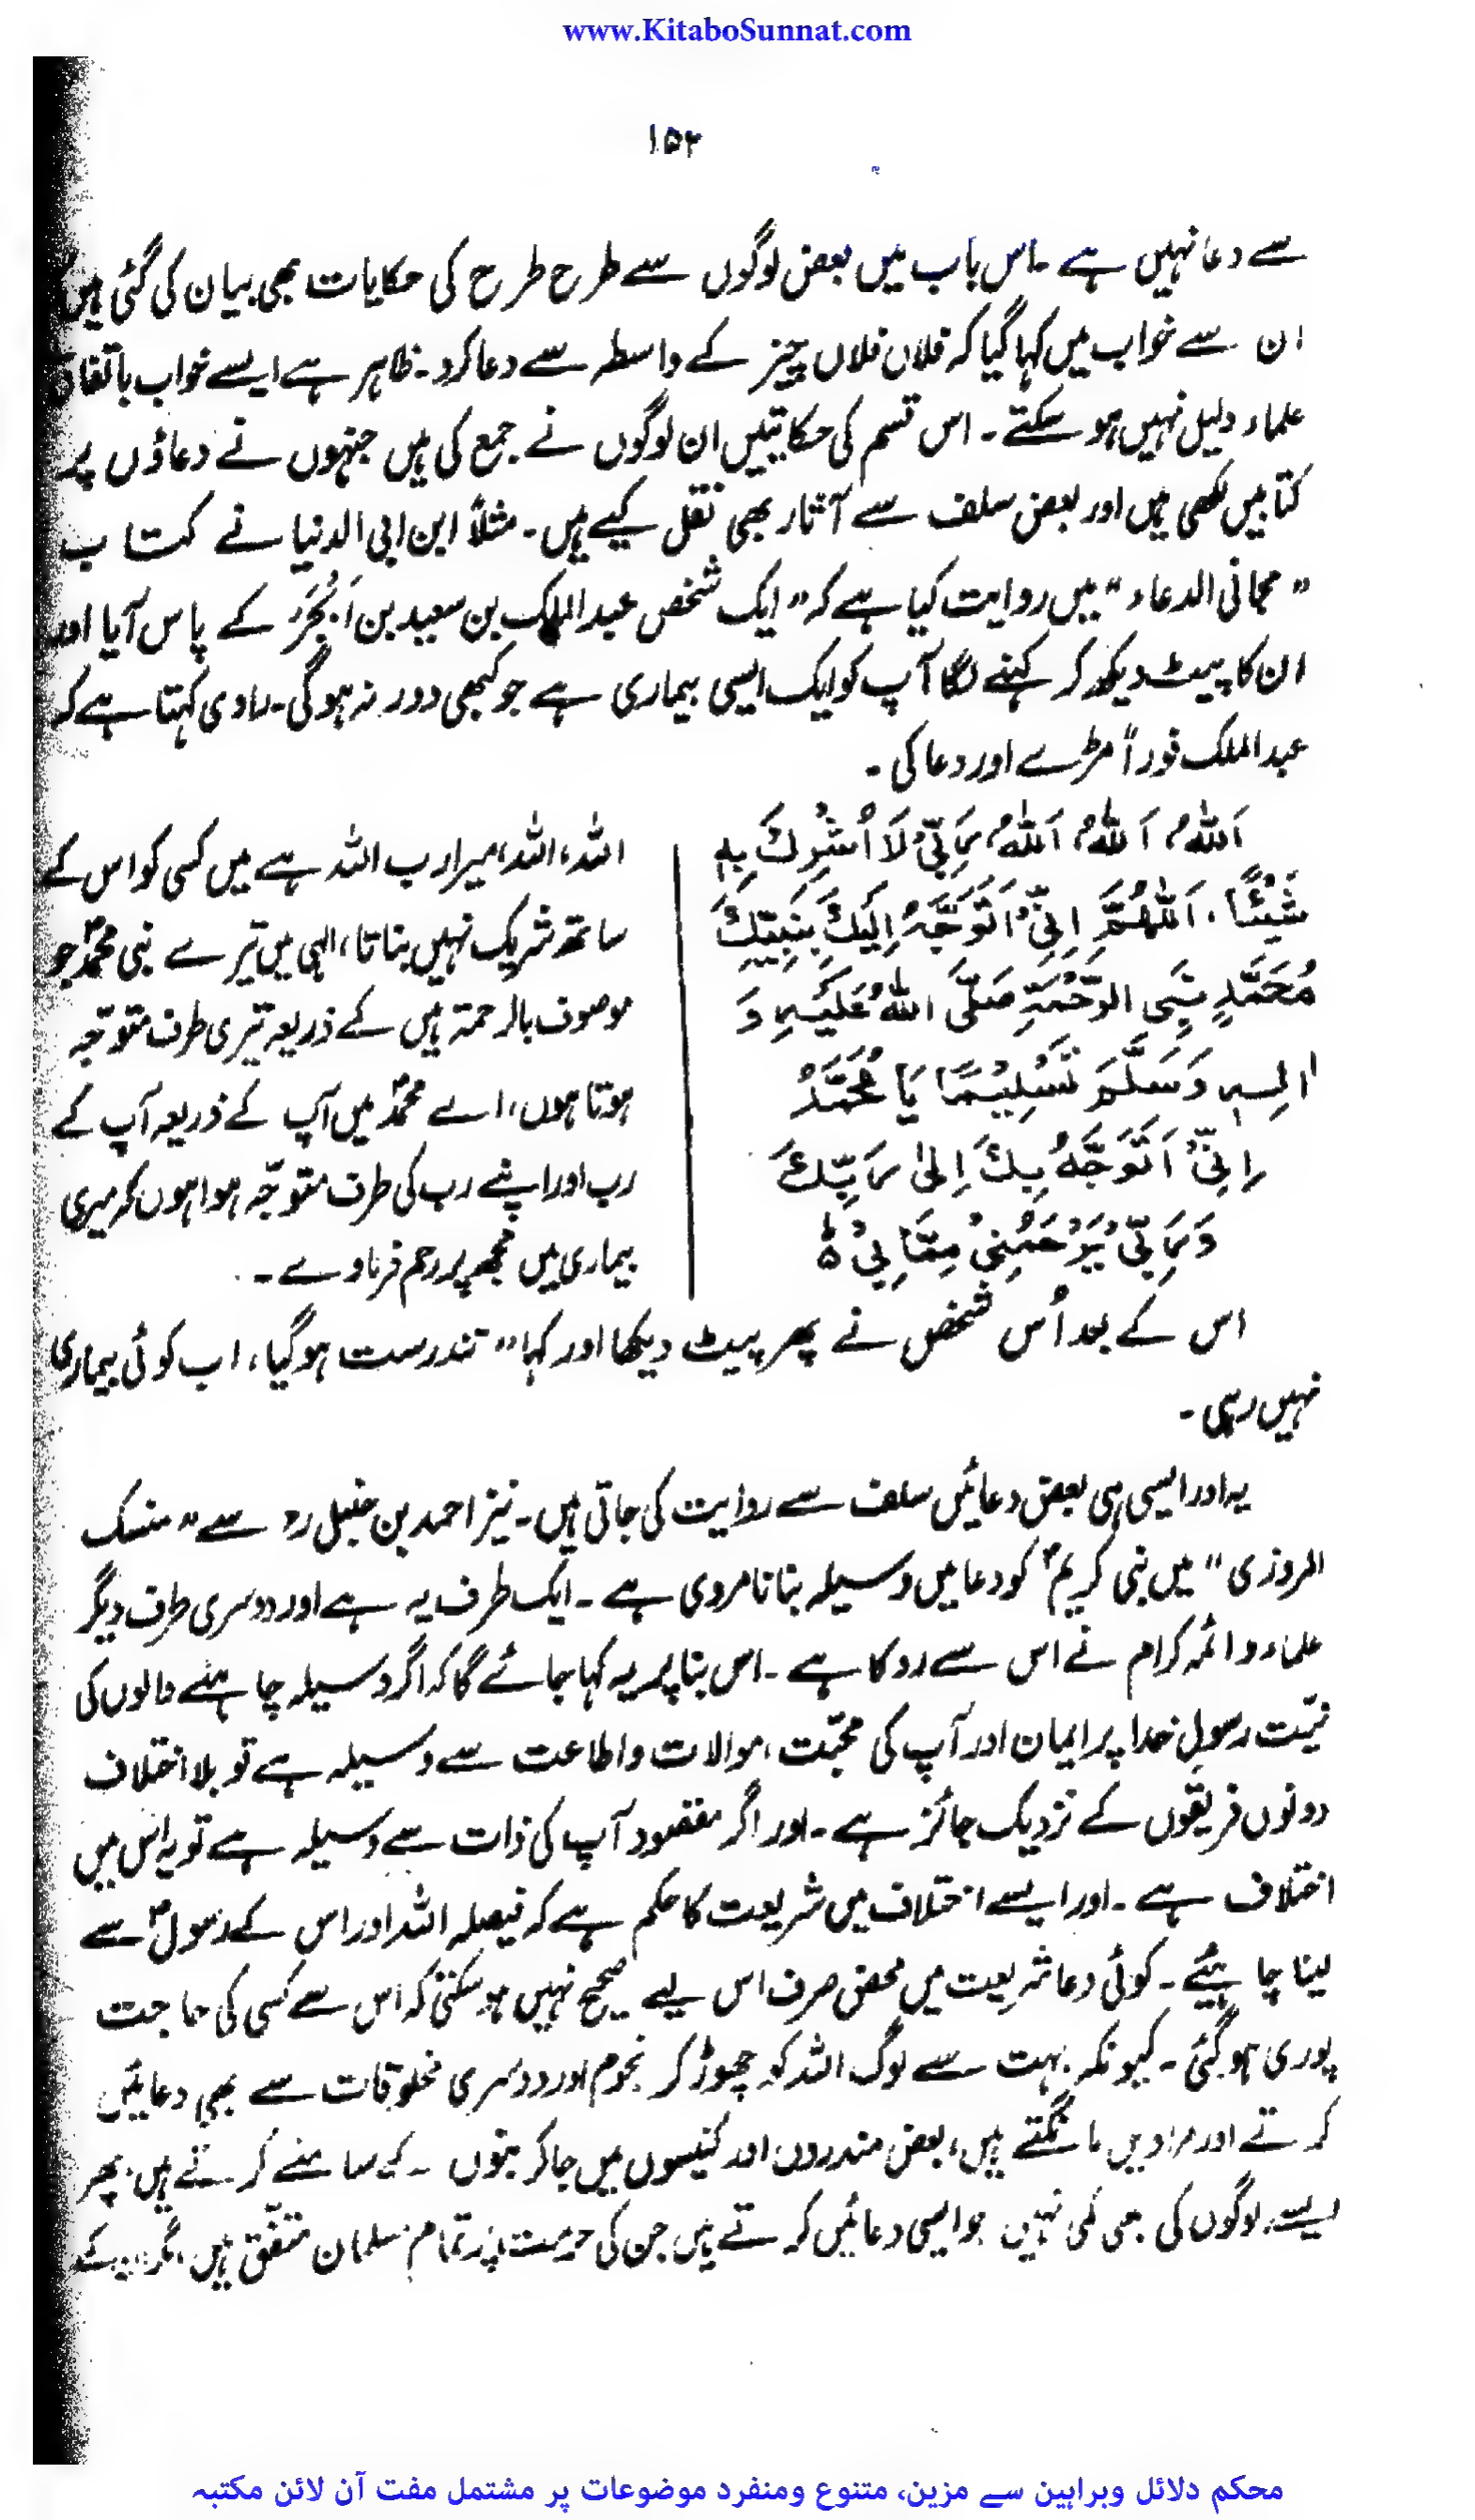 www.KitaboSunnat.com
۱۵۲
سے دعا نہیں ہے ۔ اس باب میں بعض لوگوں سے طرح طرح کی حکایات بھی بیان کی گئی ہیں
ان سے خواب میں کہا گیا کہ فلاں فلاں چیز کے واسطہ سے دعا کرو۔ ظاہر ہے ایسے خواب باتفاق
علماء دلیل نہیں ہو سکتے ۔ اس قسم کی حکایتیں ان لوگوں نے جمع کی ہیں جنہوں نے دعاؤں پر
کتابیں لکھی ہیں اور بعض سلف سے آثار بھی نقل کیے ہیں ۔ مثلاً ابن ابی الدنیا نے کتاب
”مجانی الدعاء“ میں روایت کیا ہے کہ ”ایک شخص عبدالملک بن سعید بن اَبْجَرَ کے پاس آیا اور
ان کا پیٹ دیکھ کر کہنے لگا آپ کو ایک ایسی بیماری ہے جو کبھی دور نہ ہوگی۔ راوی کہتا ہے کہ
عبدالملک فوراً مڑے اور دعا کی ۔
اَللّٰهُ، اَللّٰهُ، اَللّٰهُ، رَبِّیْ لَا اُشْرِكُ بِهٖ
شَیْئًا، اَللّٰهُمَّ اِنِّیْ اَتَوَجَّهُ اِلَیْكَ بِنَبِیِّكَ
مُحَمَّدٍ نَبِیِّ الرَّحْمَةِ صَلَّی اللّٰهُ عَلَیْهِ وَ
اٰلِهٖ وَسَلَّمَ تَسْلِیْمًا یَا مُحَمَّدُ
اِنِّیْ اَتَوَجَّهُ بِكَ اِلٰی رَبِّكَ
وَرَبِّیْ یَرْحَمُنِیْ مِمَّا بِیْ ہ
اللہ، اللہ، میرا رب اللہ ہے میں کسی کو اس کے
ساتھ شریک نہیں بناتا، الٰہی میں تیرے نبی محمدؐ جو
موصوف بالرحمۃ ہیں کے ذریعہ تیری طرف متوجّہ
ہوتا ہوں، اے محمدؐ میں آپ کے ذریعہ آپ کے
رب اور اپنے رب کی طرف متوجّہ ہوا ہوں کہ میری
بیماری میں مجھ پر رحم فرماوے ۔
اس کے بعد اُس شخص نے پھر پیٹ دیکھا اور کہا ”تندرست ہوگیا، اب کوئی بیماری
نہیں رہی ۔
یہ اور ایسی ہی بعض دعائیں سلف سے روایت کی جاتی ہیں۔ نیز احمد بن حنبل رح سے ”منسک
المروزی“ میں نبی کریمؐ کو دعا میں وسیلہ بنانا مروی ہے ۔ ایک طرف یہ ہے اور دوسری طرف دیگر
علماء و ائمہ کرام نے اس سے روکا ہے ۔ اس بنا پر یہ کہا جائے گا کہ اگر وسیلہ چاہنے والوں کی
نیّت رسولِ خدا پر ایمان اور آپ کی محبّت، موالات و اطاعت سے وسیلہ ہے تو بلا اختلاف
دونوں فریقوں کے نزدیک جائز ہے ۔ اور اگر مقصود آپ کی ذات سے وسیلہ ہے تو یہ اس میں
اختلاف ہے ۔ اور ایسے اختلاف میں شریعت کا حکم ہے کہ فیصلہ اللہ اور اس کے رسولؐ سے
لینا چاہیئے ۔ کوئی دعا شریعت میں محض صرف اس لیے صحیح نہیں ہو سکتی کہ اس سے کسی کی حاجت
پوری ہوگئی ۔ کیونکہ بہت سے لوگ اللہ کو چھوڑ کر نجوم اور دوسری مخلوقات سے بھی دعائیں
کرتے اور مرادیں مانگتے ہیں، بعض مندروں اور کنیسوں میں جا کر بتوں کے سامنے کرتے ہیں، پھر
ایسے لوگوں کی بھی کمی نہیں جو ایسی دعائیں کرتے ہیں جن کی حرمت پر تمام مسلمان متفق ہیں، مگر
محکم دلائل وبراہین سے مزین، متنوع ومنفرد موضوعات پر مشتمل مفت آن لائن مکتبہ